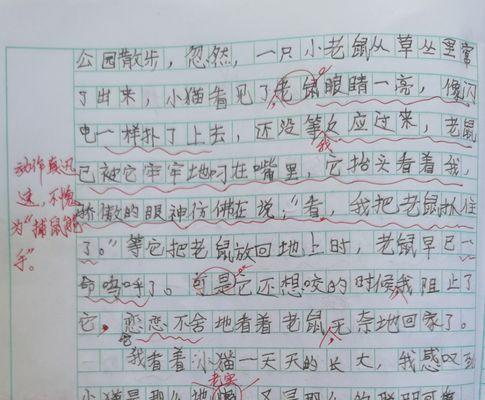 公园散步，忽然，一只小老鼠从草丛里窜
了出来，小猫看见了老鼠眼睛一亮，像闪
电一样扑了上去，还没等反应过来，老鼠
我
已被它牢牢地叼在嘴里，它抬头看着我，
骄傲的眼神仿佛在说："看，我把老鼠抓住
了。"等它把老鼠放回地上时，老鼠早已一
命呜呼了。可是它还想咬的时候我阻止了
它，恋恋不舍地看着老鼠无奈地回家了。
它
我看着小猫一天天的长大，我感叹到
老实
小猫是那么地 又是那么的聪明可
动作真迅
速，不愧
为"捕鼠能
手"。